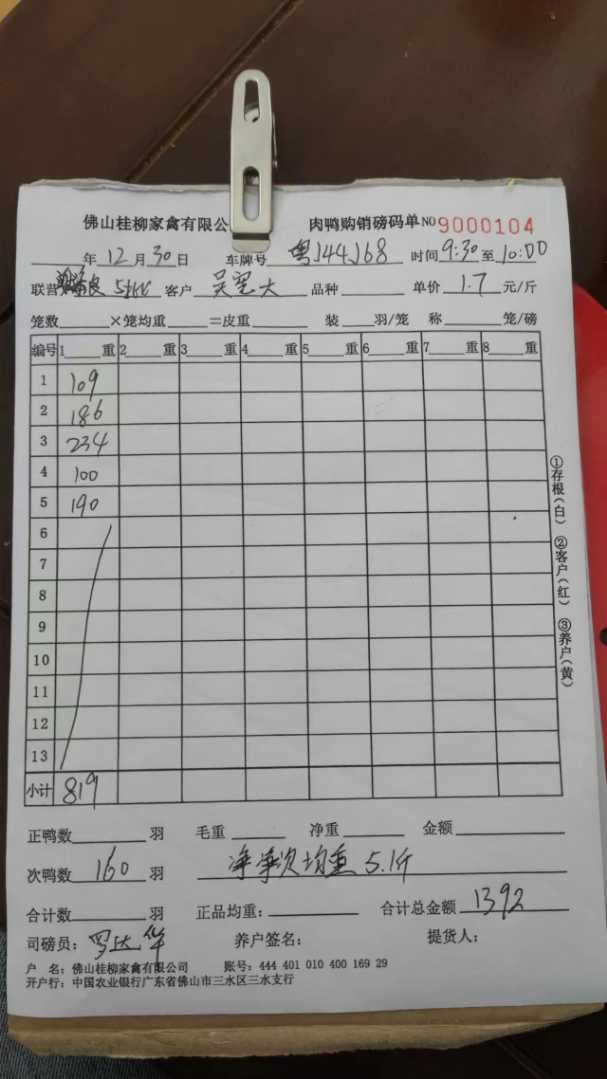 佛山桂柳家禽有限公 肉鸭购销磅码单 NO 9000104
年 12 月 30 日 车牌号 粤J44J68 时间 9:30 至 10:00
联营 客户 品种 单价 1.7 元/斤
笼数 ×笼均重 =皮重 装 羽/笼 称 笼/磅
编号 1 重 2 重 3 重 4 重 5 重 6 重 7 重 8 重
1 109
2 186
3 234
4 100
5 190
6
7
8
9
10
11
12
13
小计 819
①存根(白) ②客户(红) ③养户(黄)
正鸭数 羽 毛重 净重 金额
次鸭数 160 羽 均重 5.1斤
合计数 羽 正品均重: 合计总金额 1392
司磅员: 罗达华 养户签名: 提货人:
户 名: 佛山桂柳家禽有限公司 账号: 444 401 010 400 169 29
开户行: 中国农业银行广东省佛山市三水区三水支行